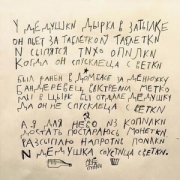 У ДЕДУШКИ ДЫРКА В ЗАТЫЛКЕ
ОН ПЬЕТ ЗА ТАБЛЕТКОЙ ТАБЛЕТКИ
И СЫПЯТСЯ ТИХО ОПИЛКИ
КОГДА ОН СПУСКАЕЦА С ВЕТКИ
БЫЛ РАНЕН В ДОМБАСЕ ЗА ДЕНЮЖКУ
БАНДЕРОВЕЦ ВЫСТРЕЛИЛ МЕТКО
МЫ В ЦЫРК БЫ ОТДАЛИ ДЕДУШКУ
ДА ОН НЕ СПУСКАЕЦА С ВЕТКИ
А Я ДЛЯ НЕВО ИЗ КОПИЛКИ
ДОСТАТЬ ПОСТАРАЮСЬ МОНЕТКИ
РАССЫПЛЮ НАПРОТИВ ПОИЛКИ
И ДЕДУШКА СПУСТИЦА С ВЕТКИ